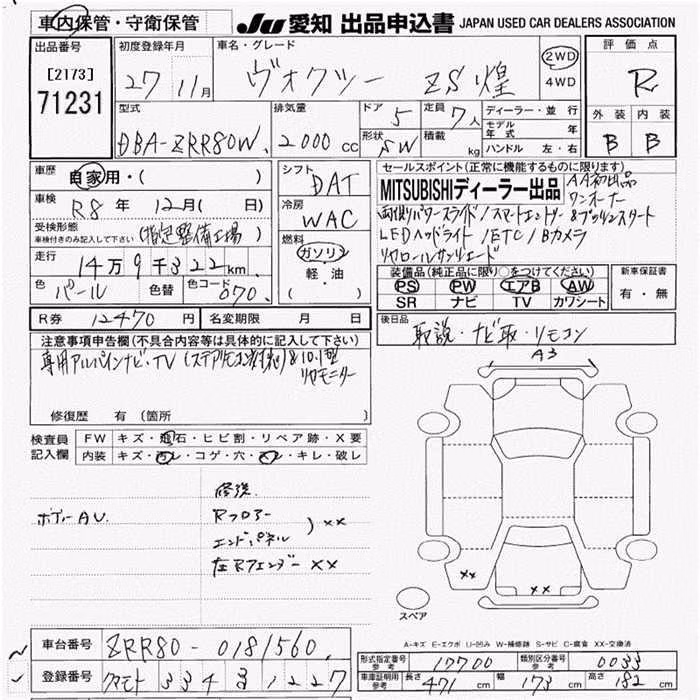 車内保管・守衛保管
JU 愛知 出品申込書 JAPAN USED CAR DEALERS ASSOCIATION
出品番号
[2173]
71231
初度登録年月
27 11月
車名・グレード
ヴォクシー ZS煌
2WD
4WD
評価点
R
外装 内装
B B
型式
DBA-ZRR80W
排気量
2000 cc
ドア 5
形状 SW
定員 7人
積載 kg
ディーラー・並行
モデル年式 年
ハンドル 左・右
車歴 自家用・( )
車検 R8年 12月( 日)
受検形態 (指定整備工場)
車検付きのみ記入して下さい
走行 14万9千322km
色 パール 色替 色コード 070
シフト DAT
冷房 WAC
燃料 ガソリン
軽・油
( )
セールスポイント(正常に機能するものに限ります)
MITSUBISHIディーラー出品 AA初出品
ワンオーナー
両側パワースライド/スマートエントリー&プッシュスタート
LEDヘッドライト/ETC/Bカメラ
リヤロールサンシェード
装備品(純正品に限り○をつけてください)
PS PW エアB AW
SR ナビ TV カワシート
新車保証書
有・無
R券 12470円 名変期限 月 日
後日品
取説・ナビ取・リモコン
注意事項申告欄(不具合内容等は具体的に記入して下さい)
専用アルパインナビ・TV(ステアリモコン対応)&10.1型
リヤモニター
修復歴 有(箇所
検査員
記入欄
FW キズ・飛石・ヒビ割・リペア跡・X要
内装 キズ・汚レ・コゲ・穴・スレ・キレ・破レ
ボデーAU
修複.
Rフロアー
エンドパネル ) ××
左Rフェンダー ××
A3
××
××
スペア
A-キズ E-エクボ U-凹み W-補修跡 S-サビ C-腐食 XX-交換済
車台番号 ZRR80-0181560
登録番号 クマモト 334 る 1227
形式指定番号 参考 17700 類別区分番号 参考 0033
車庫証明用 参考 長さ 471cm 幅 173cm 高さ 182cm